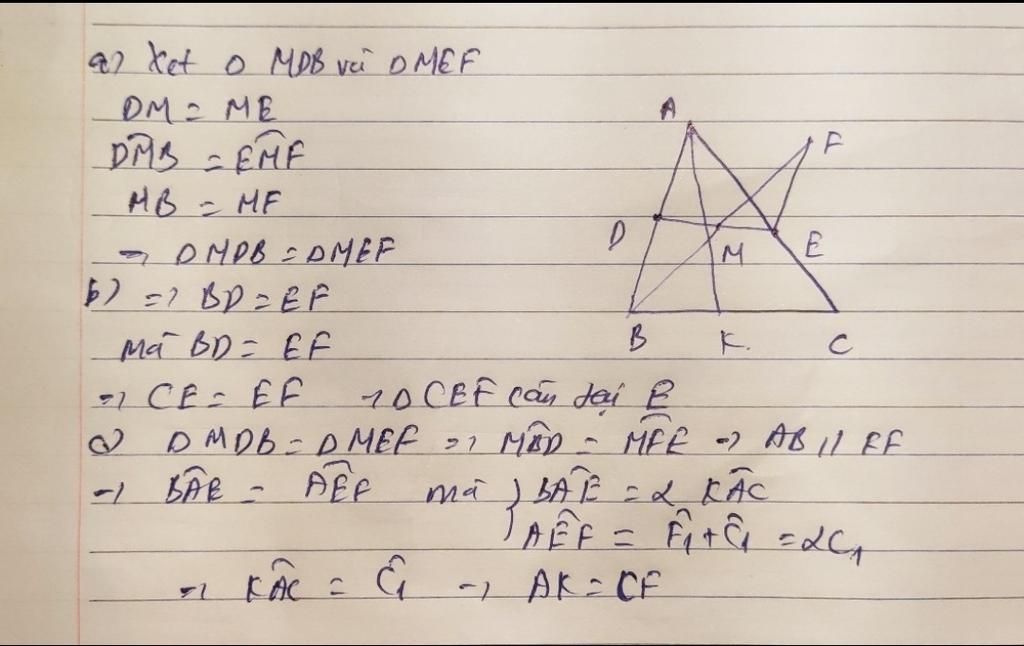 a) Xét Δ MDB và Δ MEF
DM = ME
DM̂B = EM̂F
MB = MF
=> Δ MDB = Δ MEF
b) => BD = EF
mà BD = EF
=> CE = EF => Δ CEF cân tại E
c) Δ MDB = Δ MEF => MB̂D = MF̂E => AB // EF
=> BÂE = AÊF mà } BÂE = 2 KÂC
AÊF = F̂₁ + Ĉ₁ = 2C₁
=> KÂC = Ĉ₁ => AK = CF
A
F
D
M
E
B
K
C